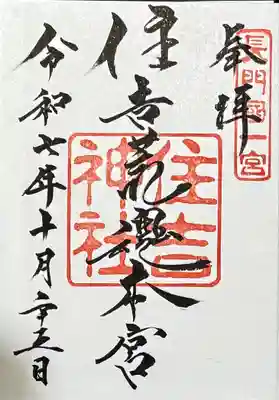 長門國一宮
奉拝
住吉荒魂本宮
住吉
神社
令和七年十月二十五日